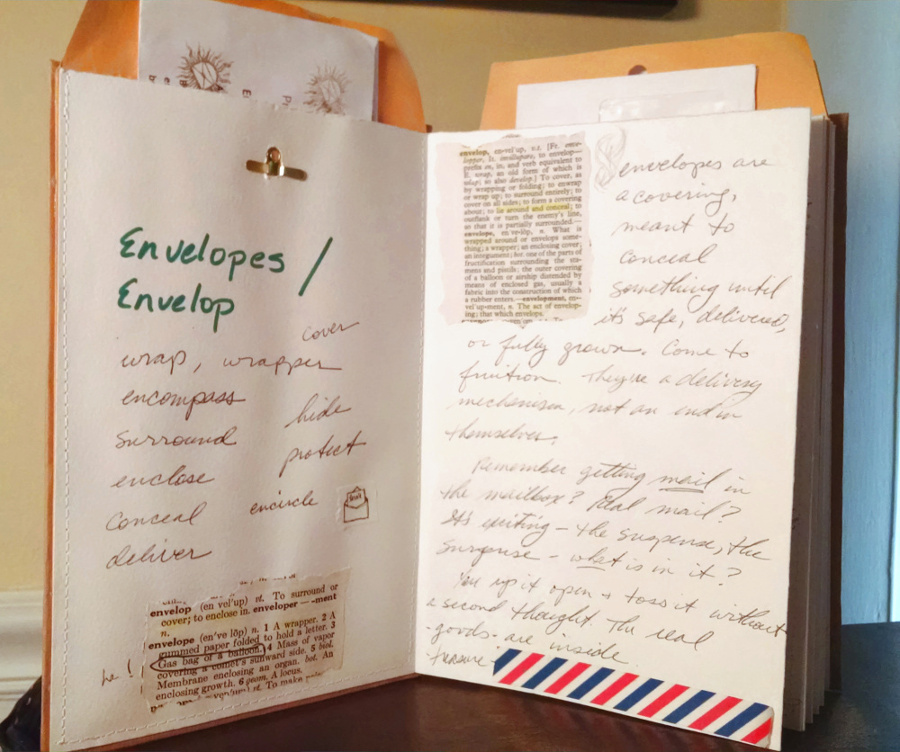 Envelopes /
Envelop
cover
wrap, wrapper
encompass
hide
surround
protect
enclose
encircle
conceal
deliver
envelop (en vel'up) vt. To surround or
cover; to enclose in. enveloper — -ment
n.
envelope (en've lōp) n. 1 A wrapper. 2 A
gummed paper folded to hold a letter. 3
Gas bag of a balloon. 4 Mass of vapor
covering a comet's sunward side. 5 biol.
Membrane enclosing an organ. bot. An
enclosing growth. 6 geom. A locus.
he!
envelop, en-vel'up, v.t. [Fr. enve-
lopper, It. inviluppare, to envelop—
prefix en, in, and verb equivalent to
E. wrap, an old form of which is
wlap; so also develop.] To cover, as
by wrapping or folding; to enwrap
or wrap up; to surround entirely; to
cover on all sides; to form a covering
about; to lie around and conceal; to
outflank or turn the enemy's line,
so that it is partially surrounded.—
envelope, en've-lōp, n. What is
wrapped around or envelops some-
thing; a wrapper; an enclosing cover;
an integument; bot. one of the parts of
fructification surrounding the sta-
mens and pistils; the outer covering
of a balloon or airship distended by
means of enclosed gas, usually a
fabric into the construction of which
a rubber enters.—envelopment, en-
vel'up-ment, n. The act of envelop-
ing; that which envelops.
envelopes are
a covering,
meant to
conceal
something until
it's safe, delivered,
or fully grown. Come to
fruition. They're a delivery
mechanism, not an end in
themselves.
Remember getting mail in
the mailbox? Real mail?
It's exciting – the suspense, the
surprise – what is in it?
You rip it open + toss it without
a second thought. The real
-goods- are inside
treasure